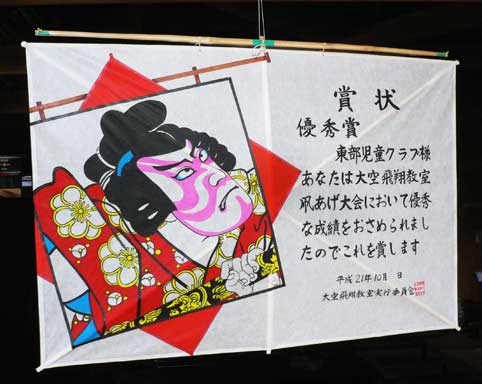 賞状
優秀賞
東部児童クラブ様
あなたは大空飛翔教室
凧あげ大会において優秀
な成績をおさめられまし
たのでこれを賞します
平成21年10月 日
大空飛翔教室実行委員会